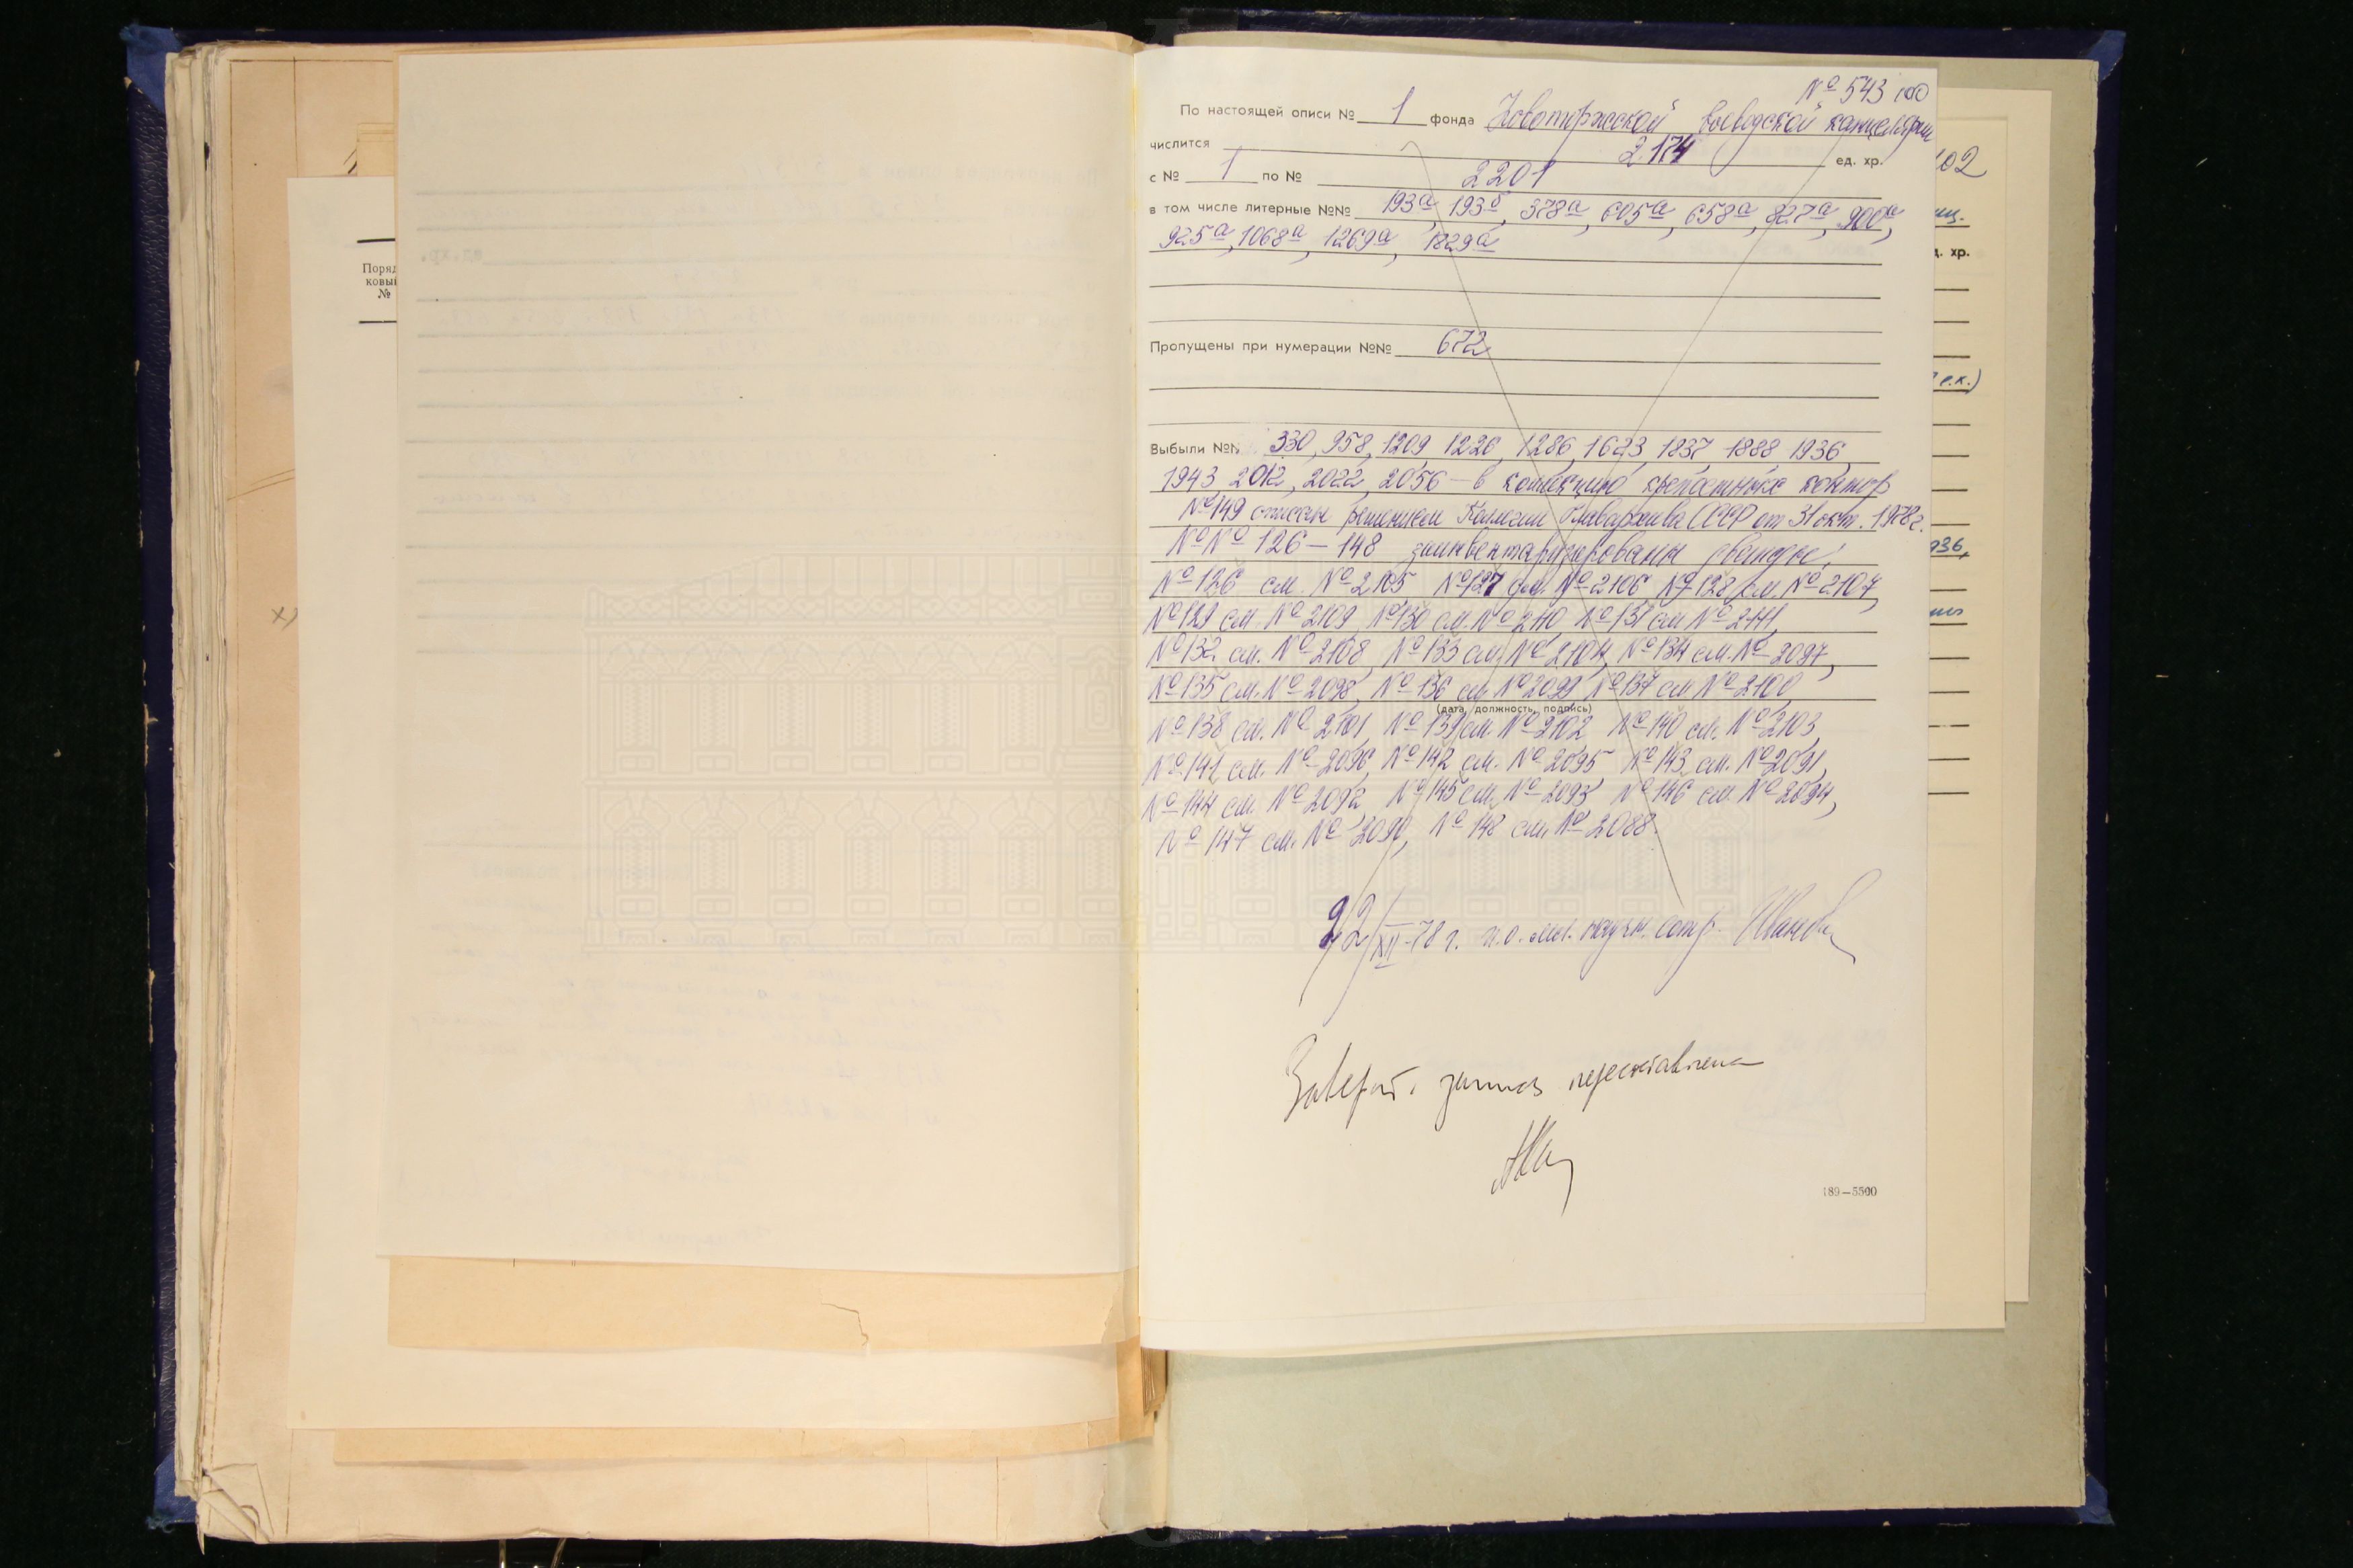 Поряд
ковый
№
х)
№ 543 100
По настоящей описи № 1 фонда Новоторжской воеводской канцелярии
числится 2174 ед. хр.
с № 1 по № 2201
в том числе литерные №№ 193а, 193б, 378а, 605а, 658а, 827а, 900а,
925а, 1068а, 1269а, 1829а
Пропущены при нумерации №№ 672
Выбыли №№ 330, 958, 1209, 1226, 1286, 1623, 1837, 1888, 1936,
1943, 2012, 2022, 2056 – в коллекцию крепостных контор
№ 149 списан решением Коллегии Главархива СССР от 31 окт. 1978 г.
№№ 126 – 148 заинвентаризированы дважды:
№ 126 см. № 2105, № 127 см. № 2106, № 128 см. № 2107,
№ 129 см. № 2109, № 130 см. № 2110, № 131 см № 2111,
№ 132 см. № 2108, № 133 см. № 2104, № 134 см. № 2097,
№ 135 см. № 2098, № 136 см. № 2099, № 137 см № 2100
(дата, должность, подпись)
№ 138 см. № 2101, № 139 см. № 2102, № 140 см. № 2103,
№ 141 см. № 2096, № 142 см. № 2095, № 143 см. № 2091,
№ 144 см. № 2092, № 145 см. № 2093, № 146 см. № 2094,
№ 147 см. № 2090, № 148 см. № 2088.
22/XII-78 г. и.о. мл. научн. сотр.
Заверит. запись пересоставлена
189—5500
102
иц.
д. хр.
е.х.)
936,